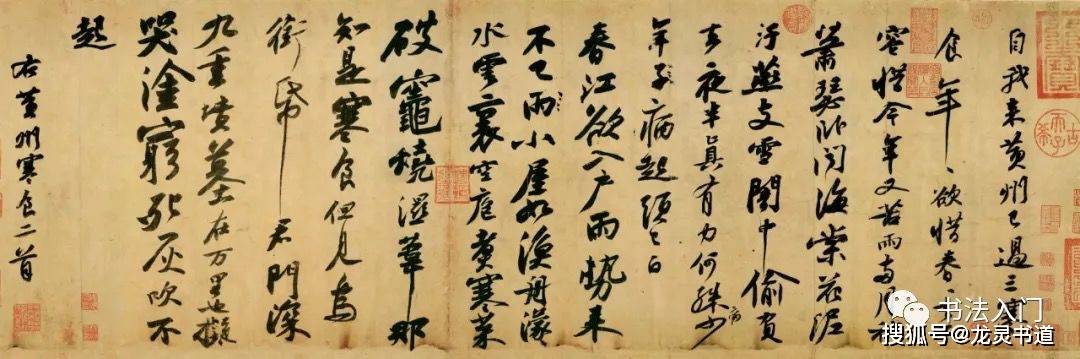 自我来黄州已過三寒
食年〻欲惜春〻
容惜今年又苦雨两月秋
蕭瑟卧闻海棠花泥
汙燕支雪闇中偷負
去夜半真有力何殊少病
年子病起頭已白
春江欲入户雨勢来
不已雨小屋如漁舟濛〻
水雲裏空庖煮寒菜
破竈燒湿葦那
知是寒食但見烏
銜帋君門深
九重墳墓在万里也擬
哭塗窮死灰吹不
起
右黄州寒食二首
书法入门
搜狐号@龙灵书道